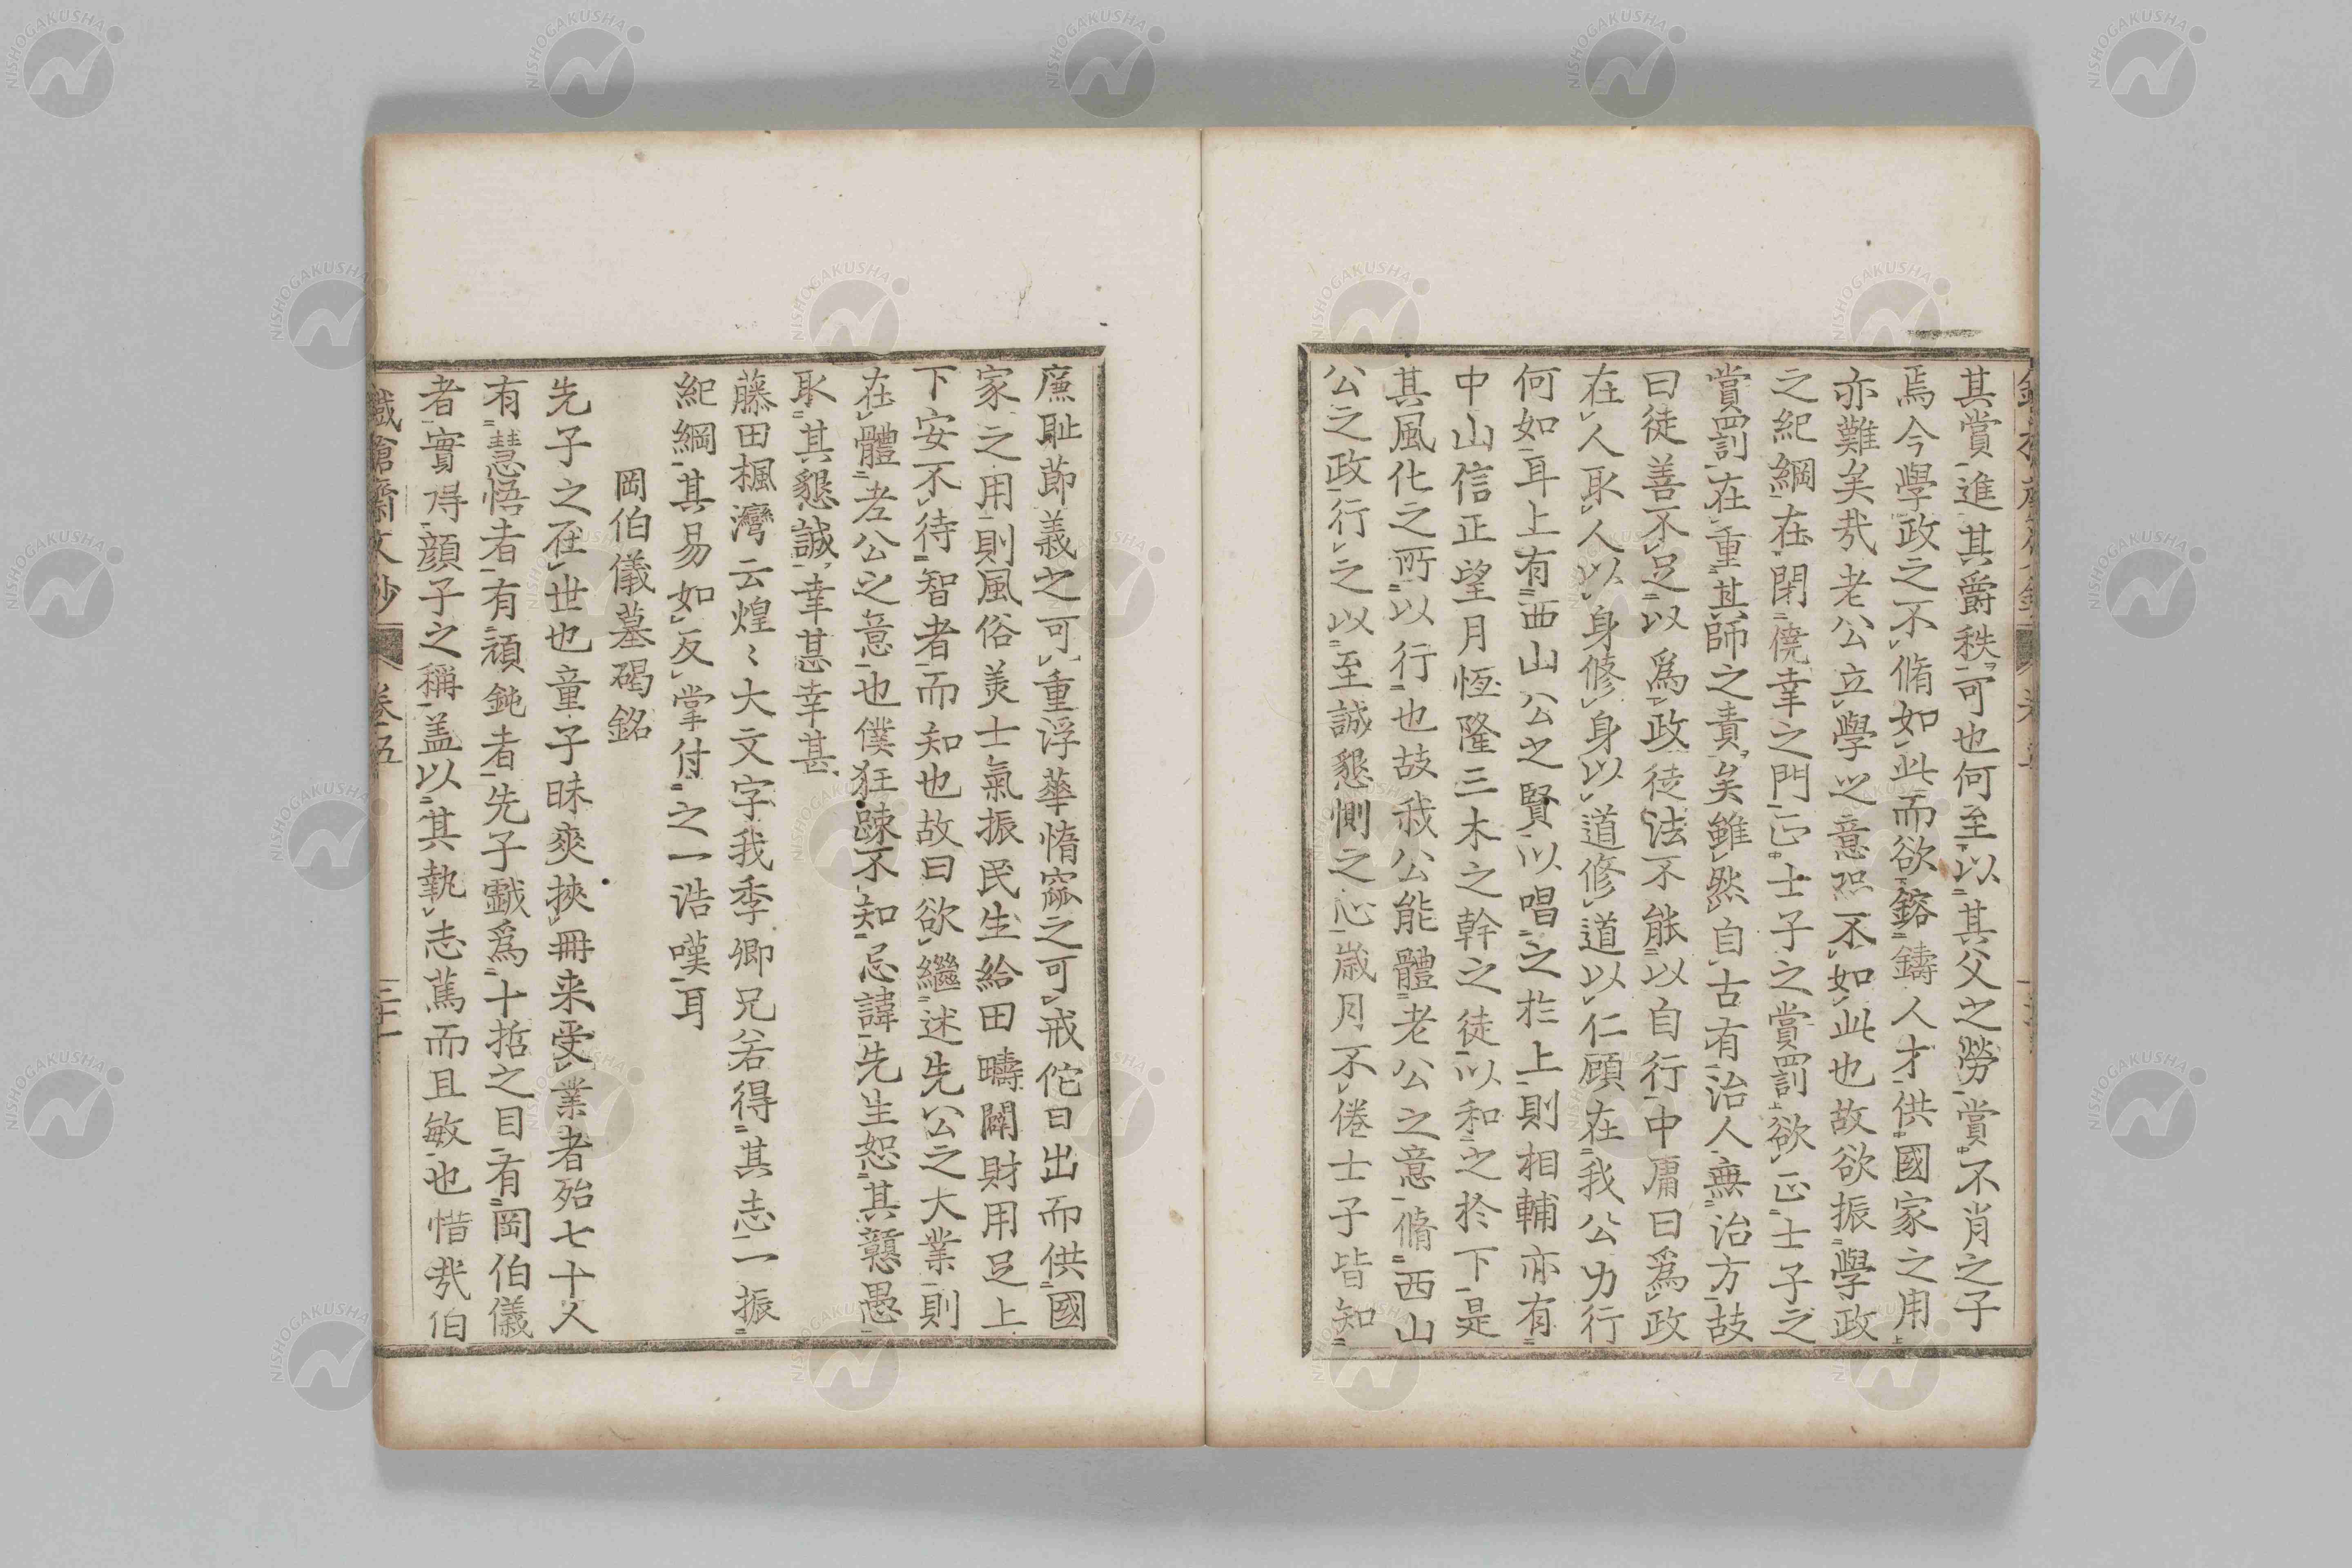 其賞進其爵秩可也何至以其父之勞賞不肖之子
焉今學政之不脩如此而欲鎔鑄人才供國家之用
亦難矣㢤老公立學之意恐不如此也故欲振學政
之紀綱在閉僥幸之門正士子之賞罰欲正士子之
賞罰在重其師之責矣雖然自古有治人無治方故
曰徒善不足以爲政徒法不能以自行中庸曰爲政
在人取人以身修身以道修道以仁顧在我公力行
何如耳上有西山公之賢以唱之於上則相輔亦有
中山信正望月恆隆三木之幹之徒以和之於下是
其風化之所以行也故我公能體老公之意脩西山
公之政行之以至誠懇惻之心歲月不倦士子皆知
廉耻節義之可重浮華惰窳之可戒佗日出而供國
家之用則風俗美士氣振民生給田疇闢財用足上
下安不待智者而知也故曰欲繼述先公之大業則
在體老公之意也僕狂疎不知忌諱先生恕其戇愚
取其懇誠幸甚幸甚
藤田楓灣云煌〻大文字我季卿兄若得其志一振
紀綱其易如反掌付之一浩嘆耳
岡伯儀墓碣銘
先子之在世也童子昧爽挾冊来受業者殆七十人
有慧悟者有頑鈍者先子戯爲十哲之目有岡伯儀
者實得顔子之稱盖以其執志篤而且敏也惜㢤伯
鐵槍齋文鈔 卷五 三十一
NISHOGAKUSHA